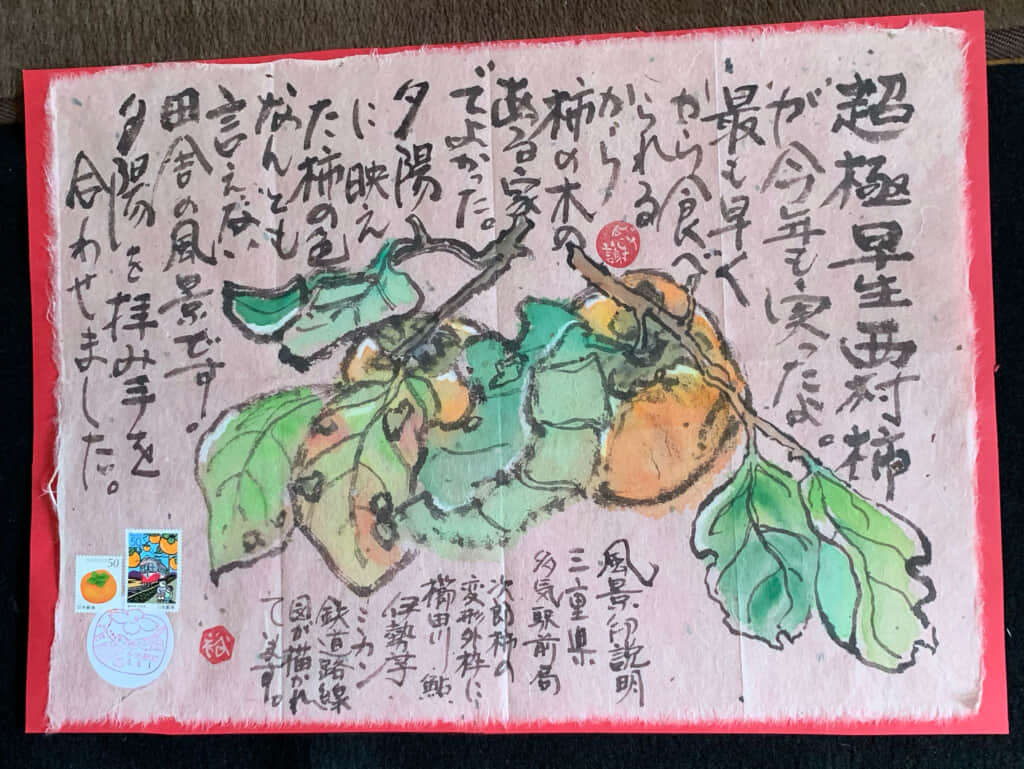 超極早生西村柿
が今年も実ったよ。
最も早く
から食べ
られる
から
柿の木の
ある家
でよかった。
夕陽
に映え
た柿の色
なんとも
言えぬ、
田舎の風景です。
夕陽を拝み手を
合わせました。
感謝
風景印説明
三重県
多気駅前局
次郎柿の
変形外枠に
櫛田川 鮎
伊勢芋
ミカン
鉄道路線
図が描かれ
てます。
50
日本郵便
日本郵便